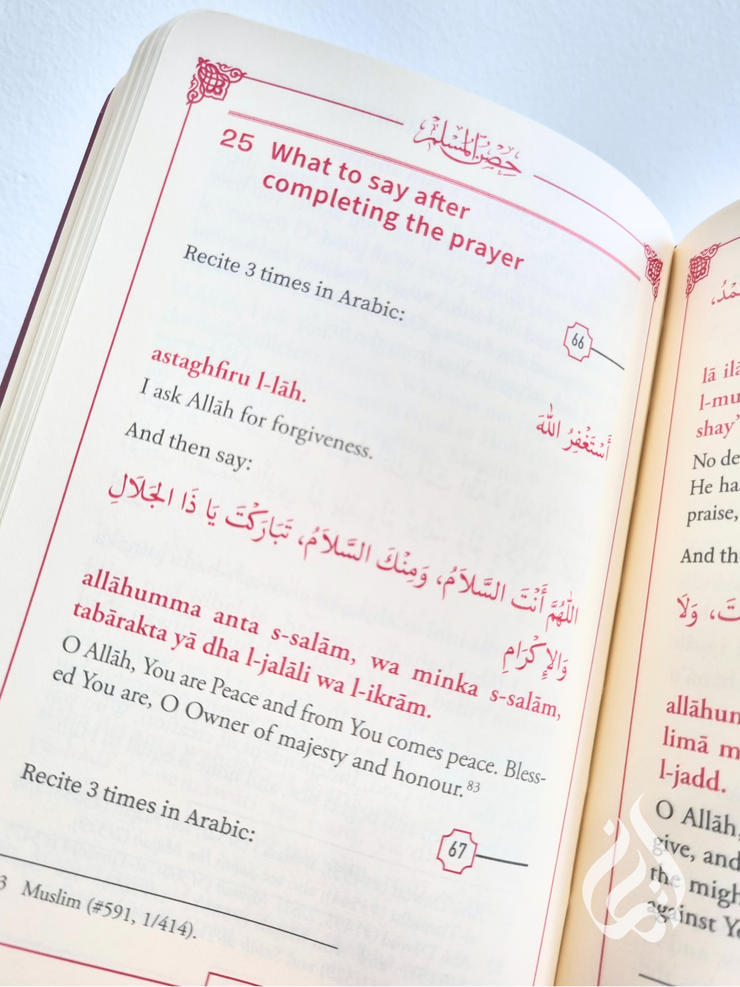 حِصْنُ المُسْلِم
25 What to say after
completing the prayer
Recite 3 times in Arabic:
66
أَسْتَغْفِرُ اللّٰهَ
astaghfiru l-lāh.
I ask Allāh for forgiveness.
And then say:
اللّٰهُمَّ أَنْتَ السَّلاَمُ، وَمِنْكَ السَّلاَمُ، تَبَارَكْتَ يَا ذَا الجَلَالِ
وَالإِكْرَامِ
allāhumma anta s-salām, wa minka s-salām,
tabārakta yā dha l-jalāli wa l-ikrām.
O Allāh, You are Peace and from You comes peace. Bless-
ed You are, O Owner of majesty and honour.83
Recite 3 times in Arabic:
67
3 Muslim (#591, 1/414).
lā
l-mu
shay'
No de
He ha
praise,
And th
وَلَا
allāhum
limā m
l-jadd.
O Allāh,
give, and
the migh
against Yo